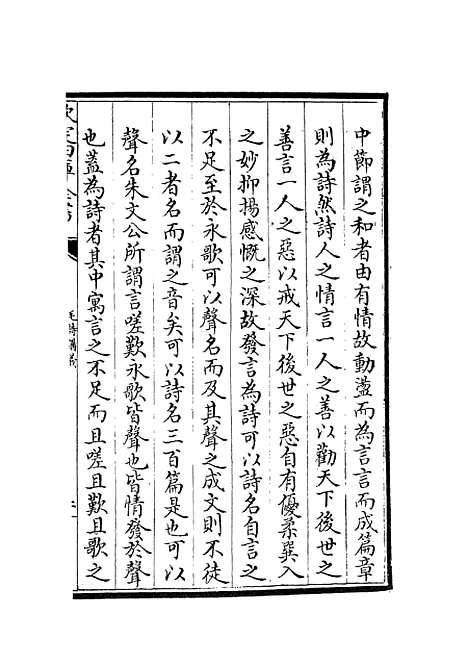 中節謂之和者由有情故動盪而為言言而成篇章
則為詩然詩人之情言一人之善以勸天下後世之
善言一人之惡以戒天下後世之惡自有優柔巽入
之妙抑揚感慨之深故發言為詩可以詩名自言之
不足至於永歌可以聲名而及其聲之成文則不徒
以二者名而謂之音矣可以詩名三百篇是也可以
聲名朱文公所謂言嗟歎永歌皆聲也皆情發於聲
也蓋為詩者其中寓言之不足而且嗟且歎且歌之
欽定四庫全書
毛詩講義